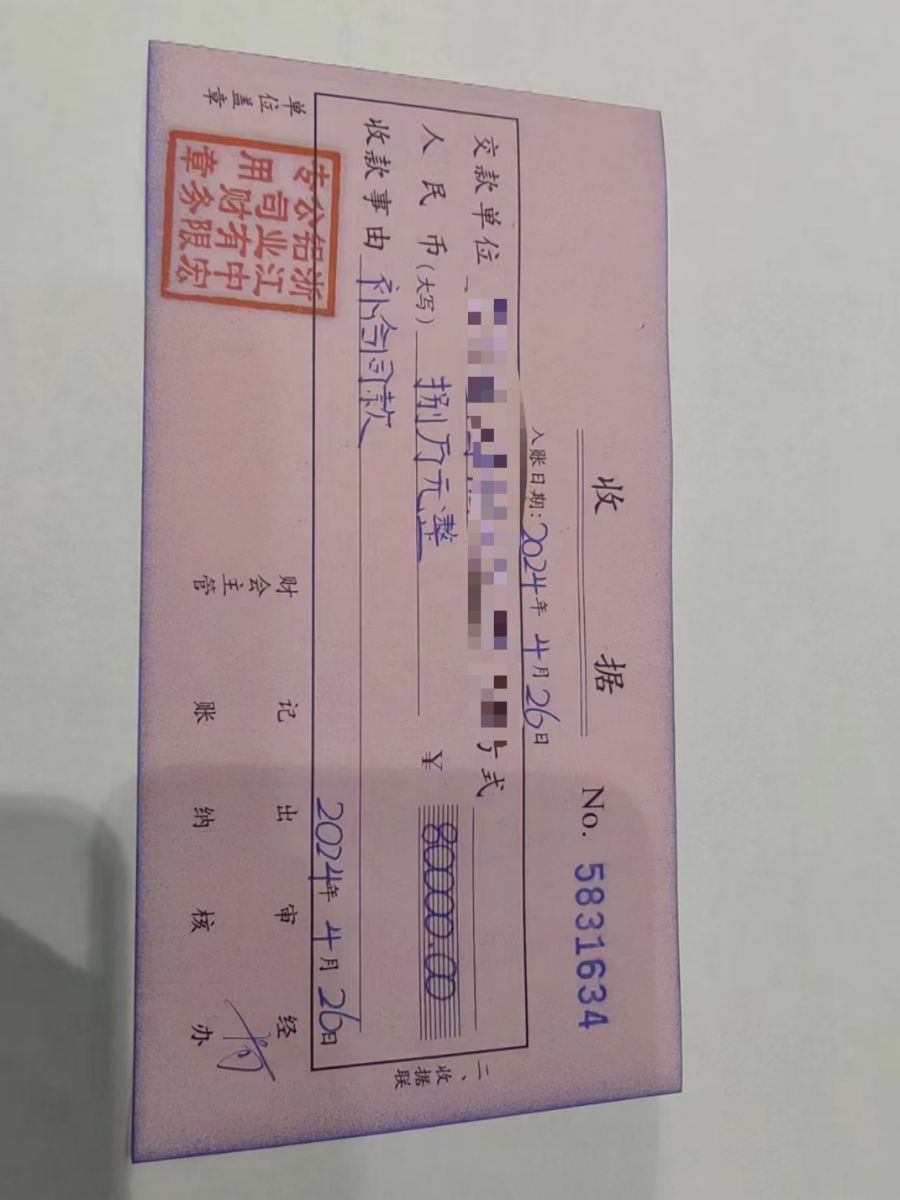 收 据 No. 5831634
入账日期: 2024年 4月 26日
交款单位 式
人民币(大写) 捌万元整 ¥ 80000.00
收款事由 补合同款
2024年 4月 26日
二、收据联
单位盖章 财会主管 记账 出纳 审核 经办
浙江中宏铝业有限公司财务专用章